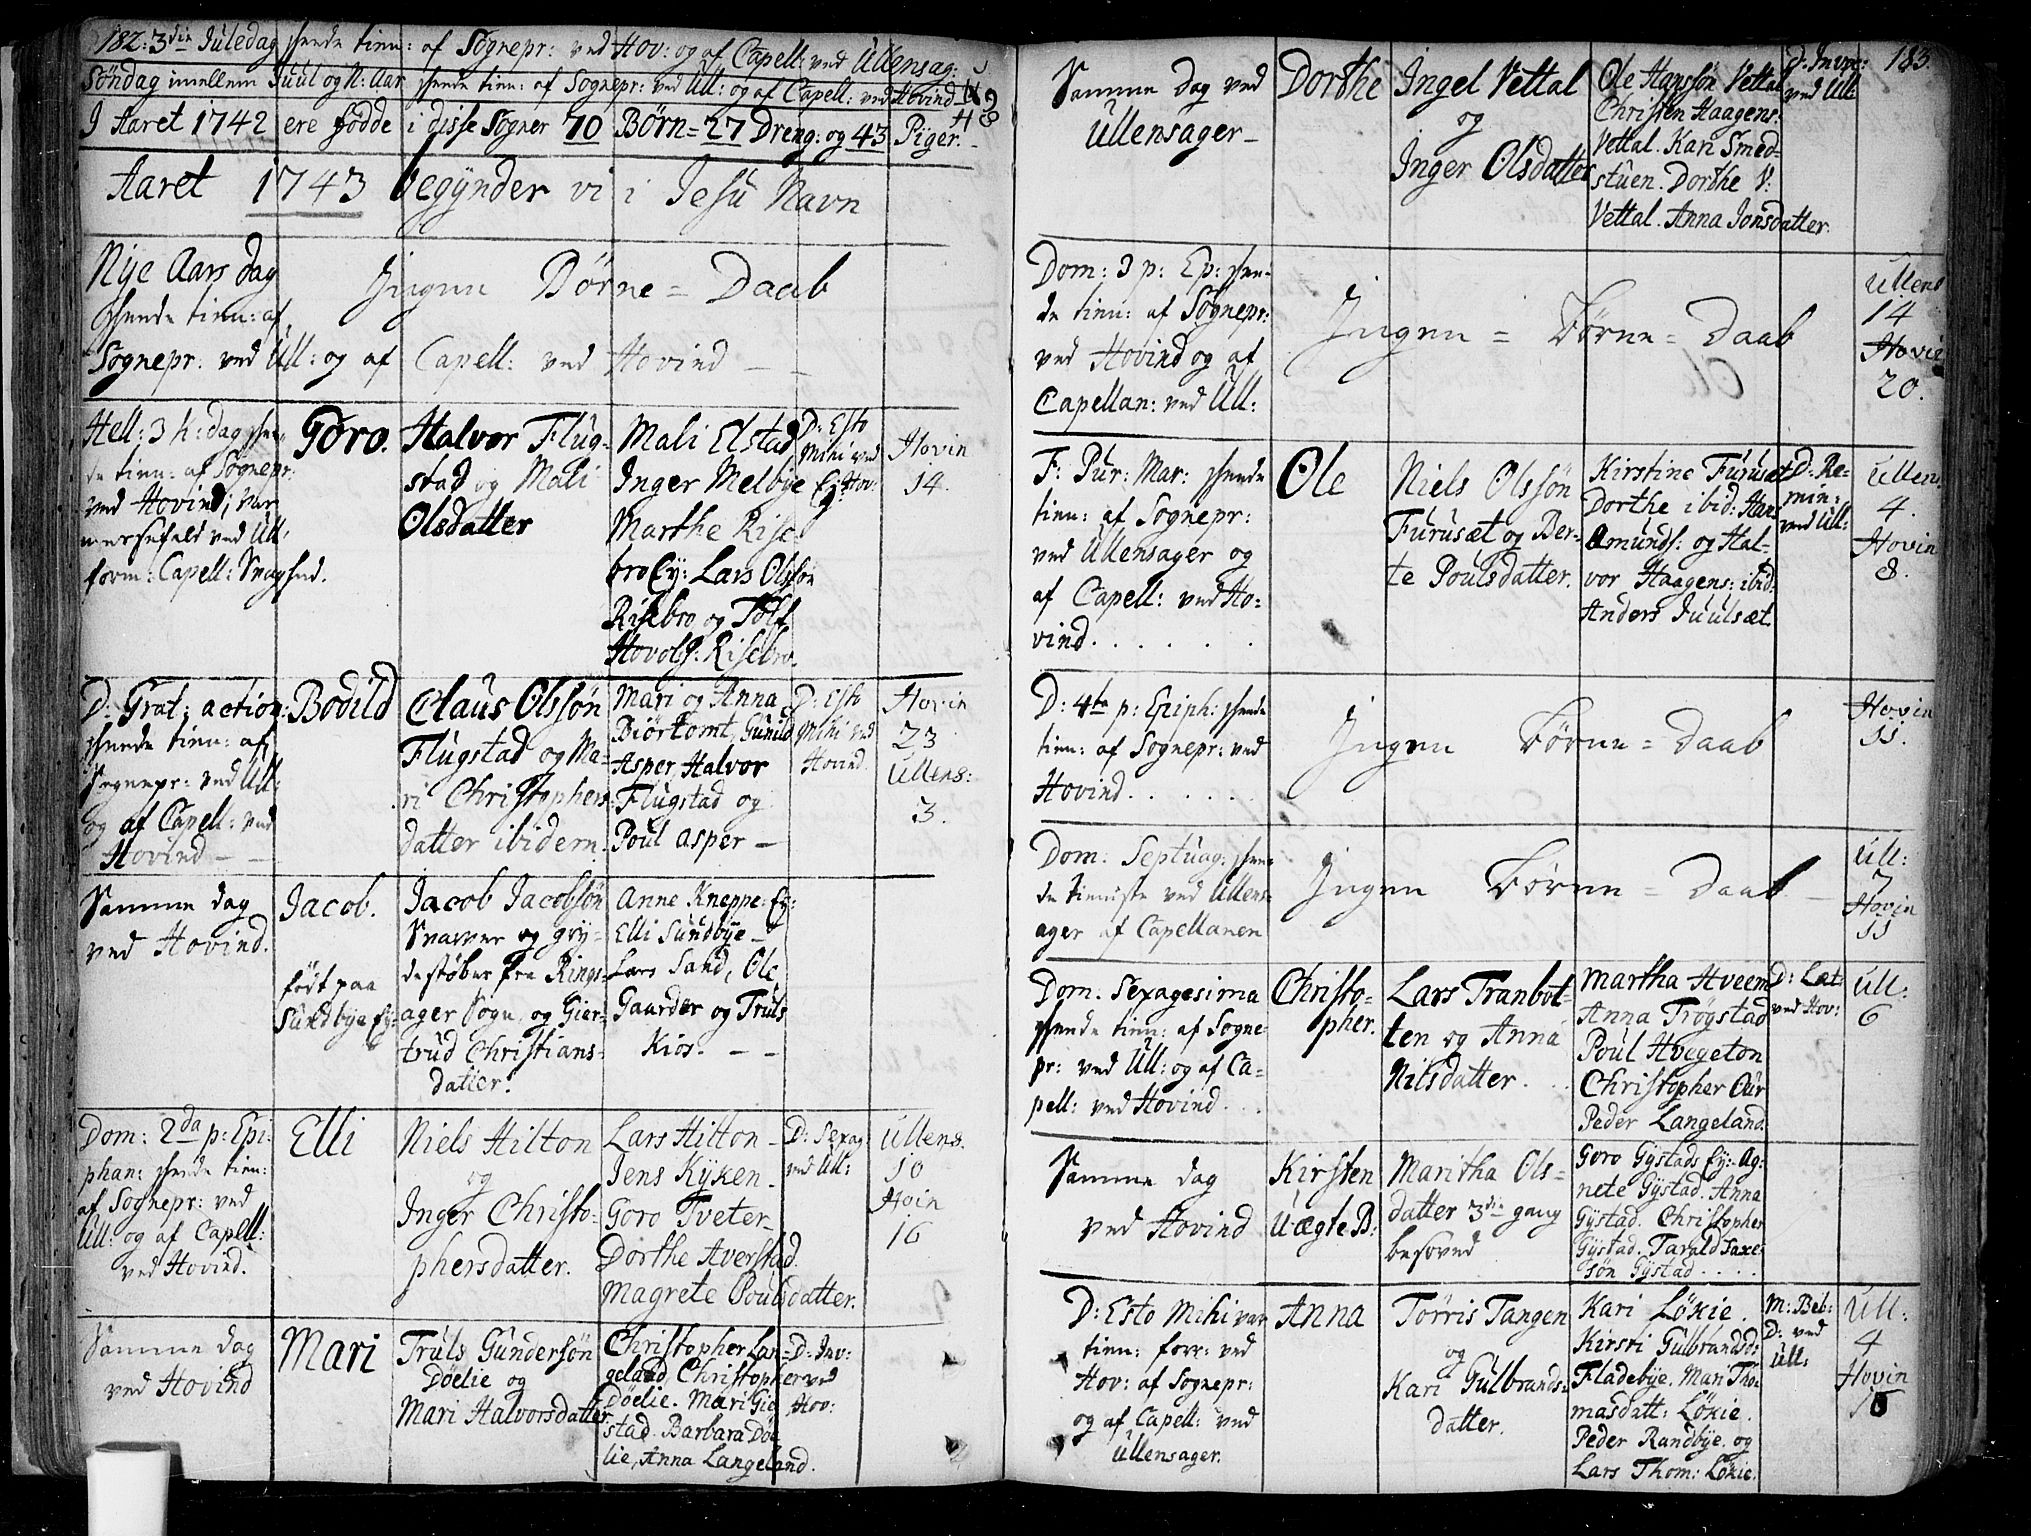 182. 3die Juledag skeede tien: af Sognepr: ved Hov: og af Capell: ved Ullensag:
Søndag imellem Juul og N: Aar skeede tien: af Sognepr: ved Ull: og af Capell: ved Hovind
I Aaret 1742 ere fødde i disse Sogner 70 Børn = 27 Dreng: og 43 Piger.
Aaret 1743 begÿnder vi i Jesu Navn
Nye Aars dag
skeede tien: af
Sognepr. ved Ull: og af Capell: ved Hovind
Ingen Børne = Daab
Hell: 3 K: dag skee
de tien: af Sognepr:
ved Hovind; var
messefald ved Ull:
form: Capell: Svaghed.
Goro.
Halvor Flug-
stad og Mali
Olsdatter
Mali Elstad
Inger Melbye
Marthe Rise
bro Ey: Lars Olssøn
Risebro og Tolf
Hovols: Risebro
D: Esto
Mihi ved
Hov:
Hovin
14.
D: Grat: action:
skeede tien: af
Sognepr: ved Ull:
og af Capell: ved
Hovind
Bodild
Claus Olssøn
Flugstad og Ma-
ri Christophers
datter ibidem.
Mari og Anna
Biørtomt, Gunild
Asper, Halvor
Flugstad og
Poul Asper
D: Esto
Mihi ved
Hovind
Hovin
23
Ullens:
3.
Samme dag
ved Hovind.
Jacob.
født paa
Sundbye Ey:
Jacob Jacobsøn
Svarver og gry-
destøber fra Rings-
ager Sogn, og Gier-
trud Christians-
datter.
Anne Kneppe: Ey:
Elli Sundbye
Lars Sand, Ole
Gaarder og Truls
Kios.
Dom: 2da p: Epi-
phan: skeede tien:
af Sognepr: ved
Ull: og af Capell:
ved Hovind.
Elli
Niels Hilton
og
Inger Christo-
phersdatter.
Lars Hilton
Jens Kÿken
Goro Tveter
Dorthe Averstad.
Magrete Poulsdatter.
D: Sexag:
ved Ull:
Ullens.
10
Hoin
16
Samme dag
ved Hovind
Mari
Truls Gundersøn
Døelie og
Mari Halvorsdatter
Christopher Lan-
geland, Christopher
Døelie. Mari Gie
stad. Barbara Døe
lie, Anna Langeland.
D: Inv:
ved
Hov:
183.
Samme dag ved
Ullensager
Dorthe
Ingel Vettal
og
Inger Olsdatter
Ole Hanssøn Vettal
Christen Haagens:
Vettal. Kari Smed-
stuen. Dorthe V:
Vettal. Anna Jonsdatter.
D: Invoc:
ved Ull:
Dom: 3 p: Ep: skee-
de tien: af Sognepr:
ved Hovind og af
Capellan: ved Ull:
Ingen = Børne = Daab
Ullens
14
Hovin
20.
F: Pur: Mar: skeede
tien: af Sognepr:
ved Ullensager og
af Capell: ved Ho-
vind.
Ole
Niels Olssøn
Furusæt og Ber-
te Poulsdatter.
Kirstine Furusæt
Dorthe ibid: Hans
Amunds: og Hal-
vor Haagens: ibid:
Anders Juulsæt
D: Re-
min:
ved Ull:
Ullens.
4.
Hovin
8.
D: 4te p: Epiph: skeede
tien: af Sognepr: ved
Hovind.
Ingen Børne = Daab
Hovin
11.
Dom: Septuag: skee-
de tieniste ved Ullens-
ager af Capellanen
Ingen Børne = Daab
Ull:
7
Hovin
11
Dom. Sexagesima
skeede tien: af Sogne-
pr: ved Ull: og af Ca-
pell: ved Hovind.
Christo-
pher.
Lars Tranbot-
ten og Anna
Nilsdatter.
Martha Hveem
Anna Trøgstad
Poul Hvegeton
Christopher Aur
Peder Langeland.
D: Læt:
ved Hov:
Ull:
6
Samme dag
ved Hovind
Kirsten
Uægte B:
Maritha Ols-
datter 3die gang
besoved
Goro Gÿstads Ey: Ag-
nete Gÿstad. Anna
Gÿstad. Christopher
Gÿstad. Tarald Saxe-
søn Gÿstad.
D: Esto Mihi var
tien: forr: ved
Hov: af Sognepr:
og af Capell: ved
Ullensager.
Anna
Tørris Tangen
og
Kari Gulbrands-
datter.
Kari Løkie.
Kirsti Gulbrandsd:
Fladebye. Mari Tho-
masdatt: Løkie.
Peder Randbye. og
Lars Thom: Løkie.
M: Beb:
D: ved
Ull:
Ull:
4
Hovin